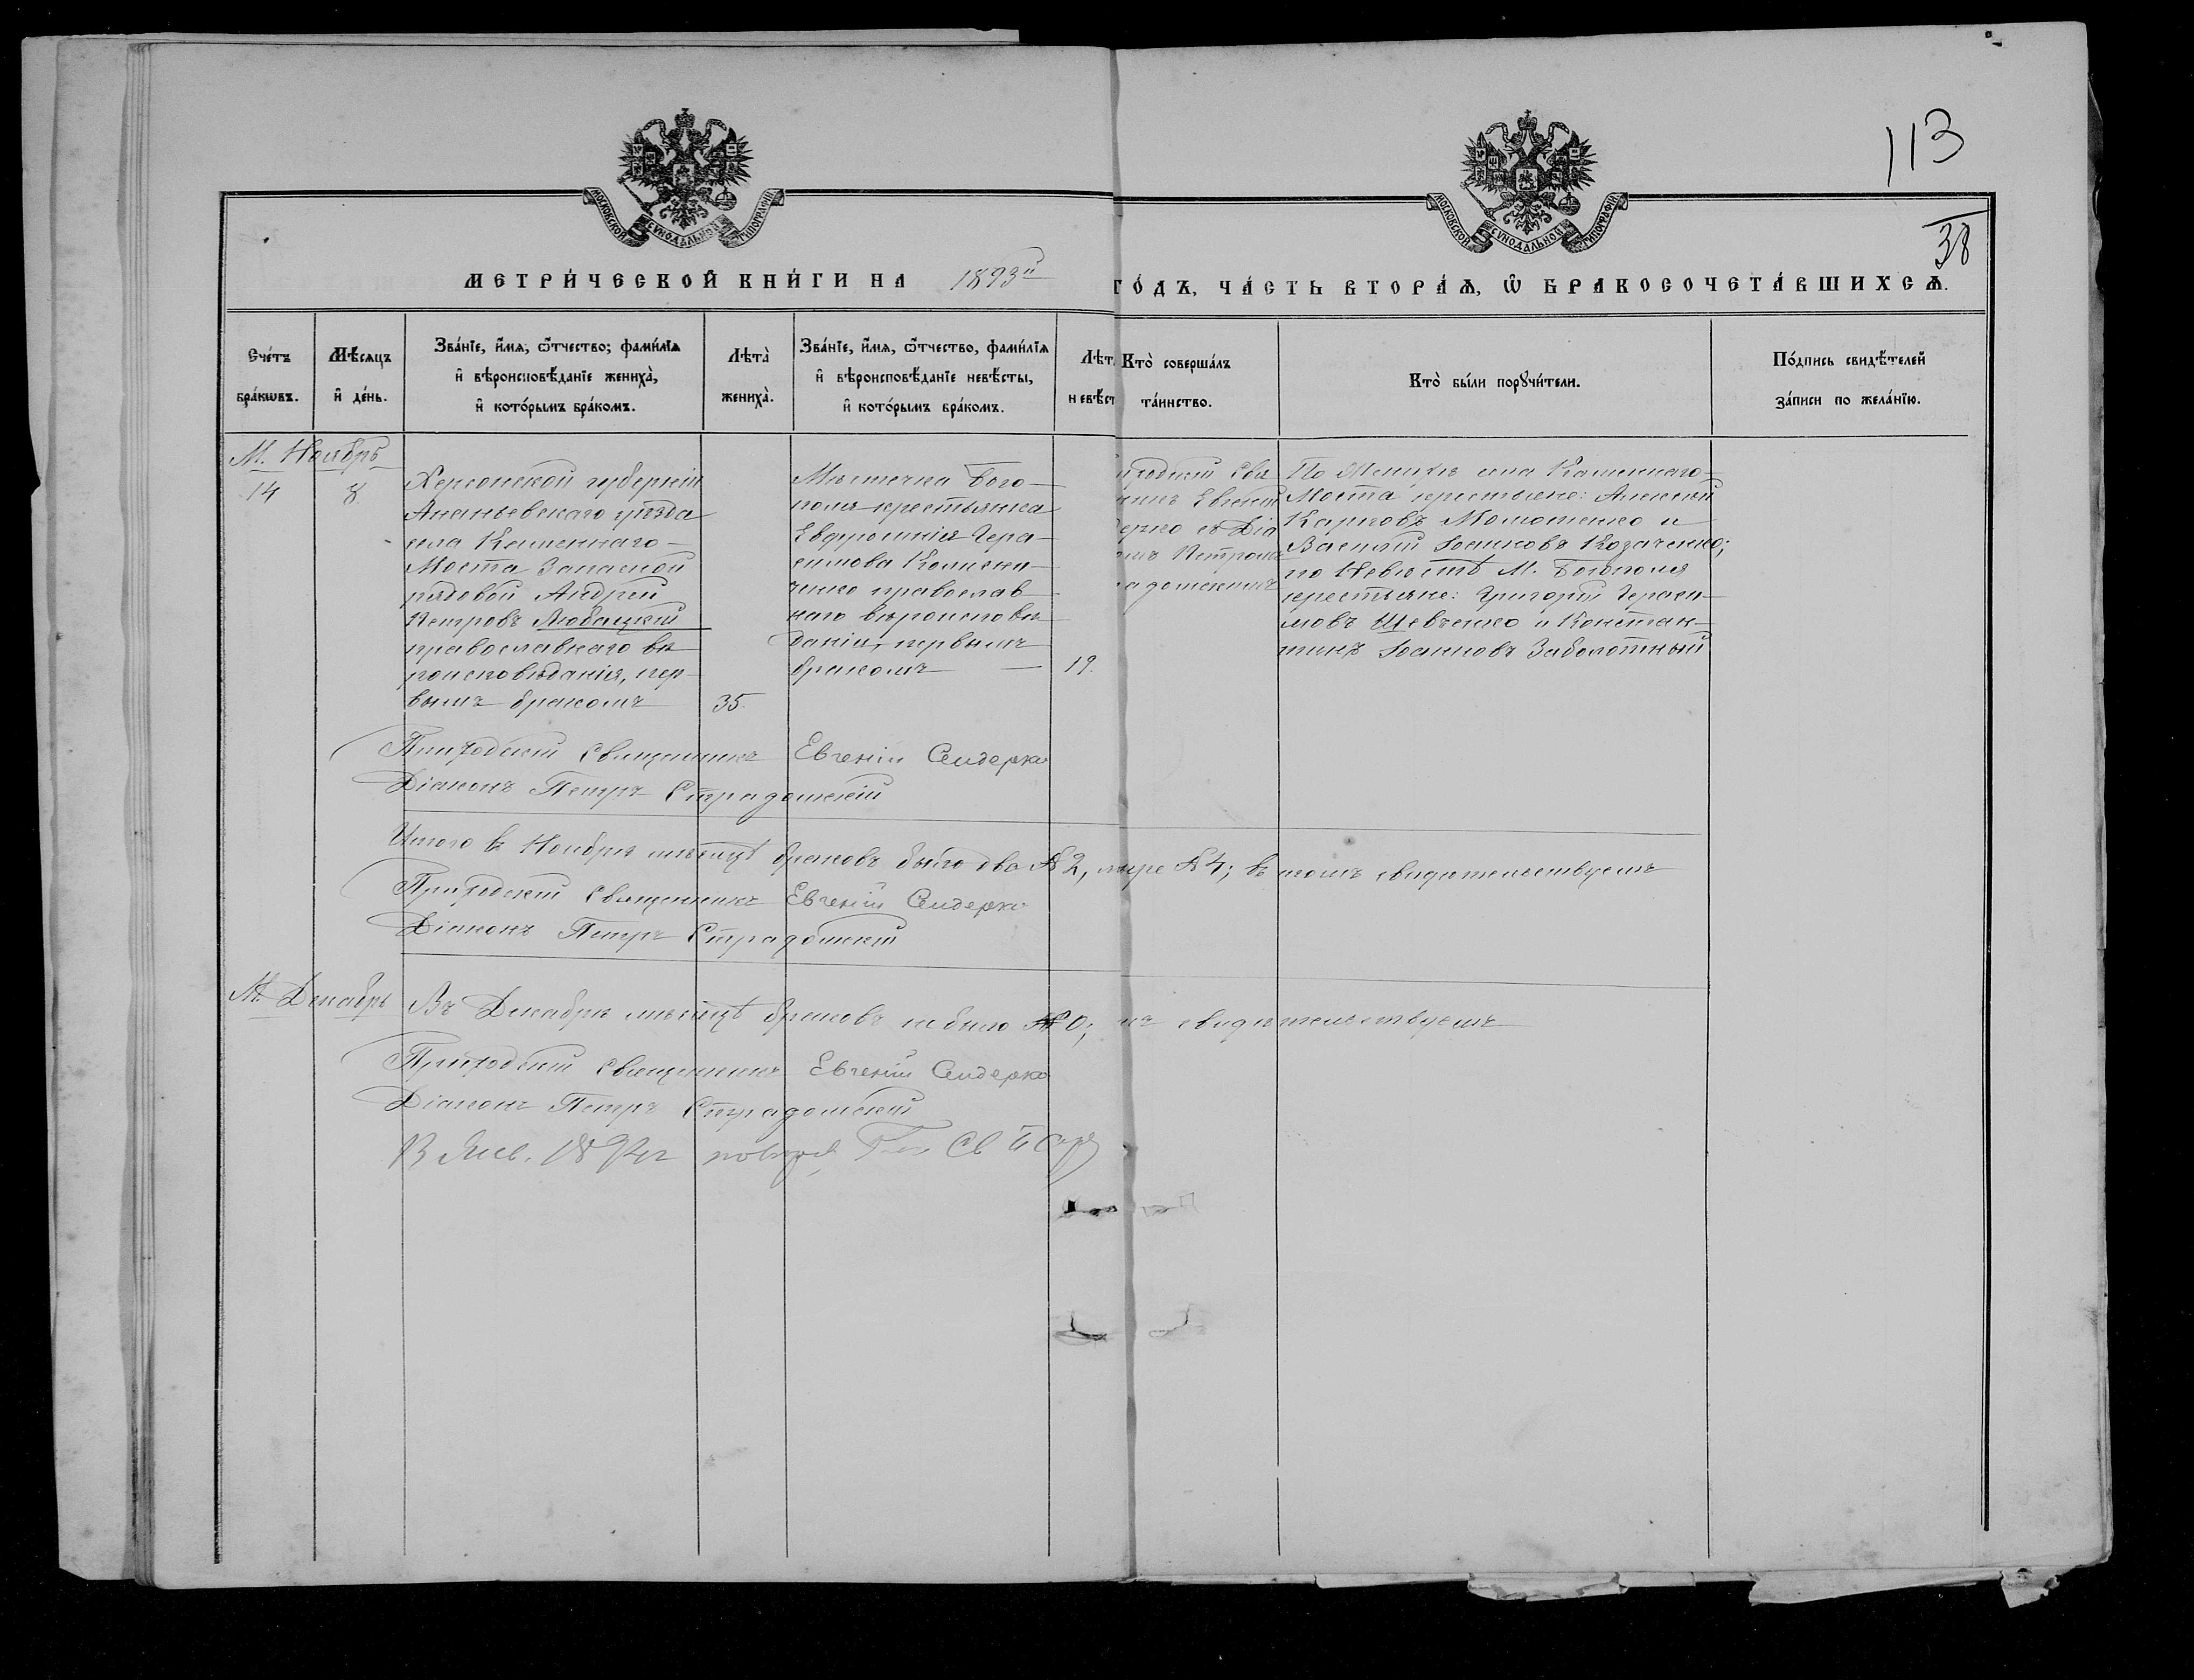 113
38
МОСКОВСКОЙ СѴНОДАЛЬНОЙ ТИПОГРАФІИ
МОСКОВСКОЙ СѴНОДАЛЬНОЙ ТИПОГРАФІИ
МЕТРИ́ЧЕСКОЙ КНИ́ГИ НА 1893й ГО́ДЪ, ЧА́СТЬ ВТОРА́Ѧ, Ѡ БРАКОСОЧЕТА́ВШИХСѦ.
Сче́тъ
бра́кѡвъ.
Мѣ́сяцъ
и҆ де́нь.
Зва́нїе, и҆́мѧ, ѻ҆́тчество, фами́лїѧ
и҆ вѣроисповѣ́данїе жениха̀,
и҆ кото́рымъ бра́комъ.
Лѣта̀
жениха̀.
Зва́нїе, и҆́мѧ, ѻ҆́тчество, фами́лїѧ
и҆ вѣроисповѣ́данїе невѣ́сты,
и҆ кото́рымъ бра́комъ.
Лѣт
невѣст
Кто̀ соверша́лъ
та́инство.
Кто̀ бы́ли порꙋчи́тели.
По́дпись свидѣ́телей
за́писи по жела́нїю.
М. Ноябрь
14
8
Херсонской губерніи
Ананьевскаго уѣзда
села Каменнаго-
Моста Запасной
рядовой Андрей
Петровъ Любацкій
православнаго вѣ-
роисповѣданія, пер-
вымъ бракомъ
35.
Мѣстечка Бого-
поля крестьянка
Евфросинія Гера-
симова
православ-
наго вѣроисповѣ-
данія, первымъ
бракомъ —
19.
Евгеній
съ Діа
Петромъ
По Женихѣ села Каменнаго-
Моста крестьяне: Алексій
Карповъ и
Василій Іоанновъ Козаченко;
по Невѣстѣ М. Богополя
крестьяне: Григорій Гераси-
мовъ Шевченко и Констан-
тинъ Іоанновъ Заболотный
Приходскій Священникъ Евгеній Сендерко
Діаконъ Петръ Страдомскій
Итого въ Ноябрѣ мѣсяцѣ браковъ было два № 2, въ томъ свидѣтельствуемъ
Приходскій Священникъ Евгеній Сендерко
Діаконъ Петръ Страдомскій
М. Декабрь
Въ Декабрѣ мѣсяцѣ браковъ не было № 0; свидѣтельствуемъ
Приходскій Священникъ Евгеній Сендерко
Діаконъ Петръ Страдомскій